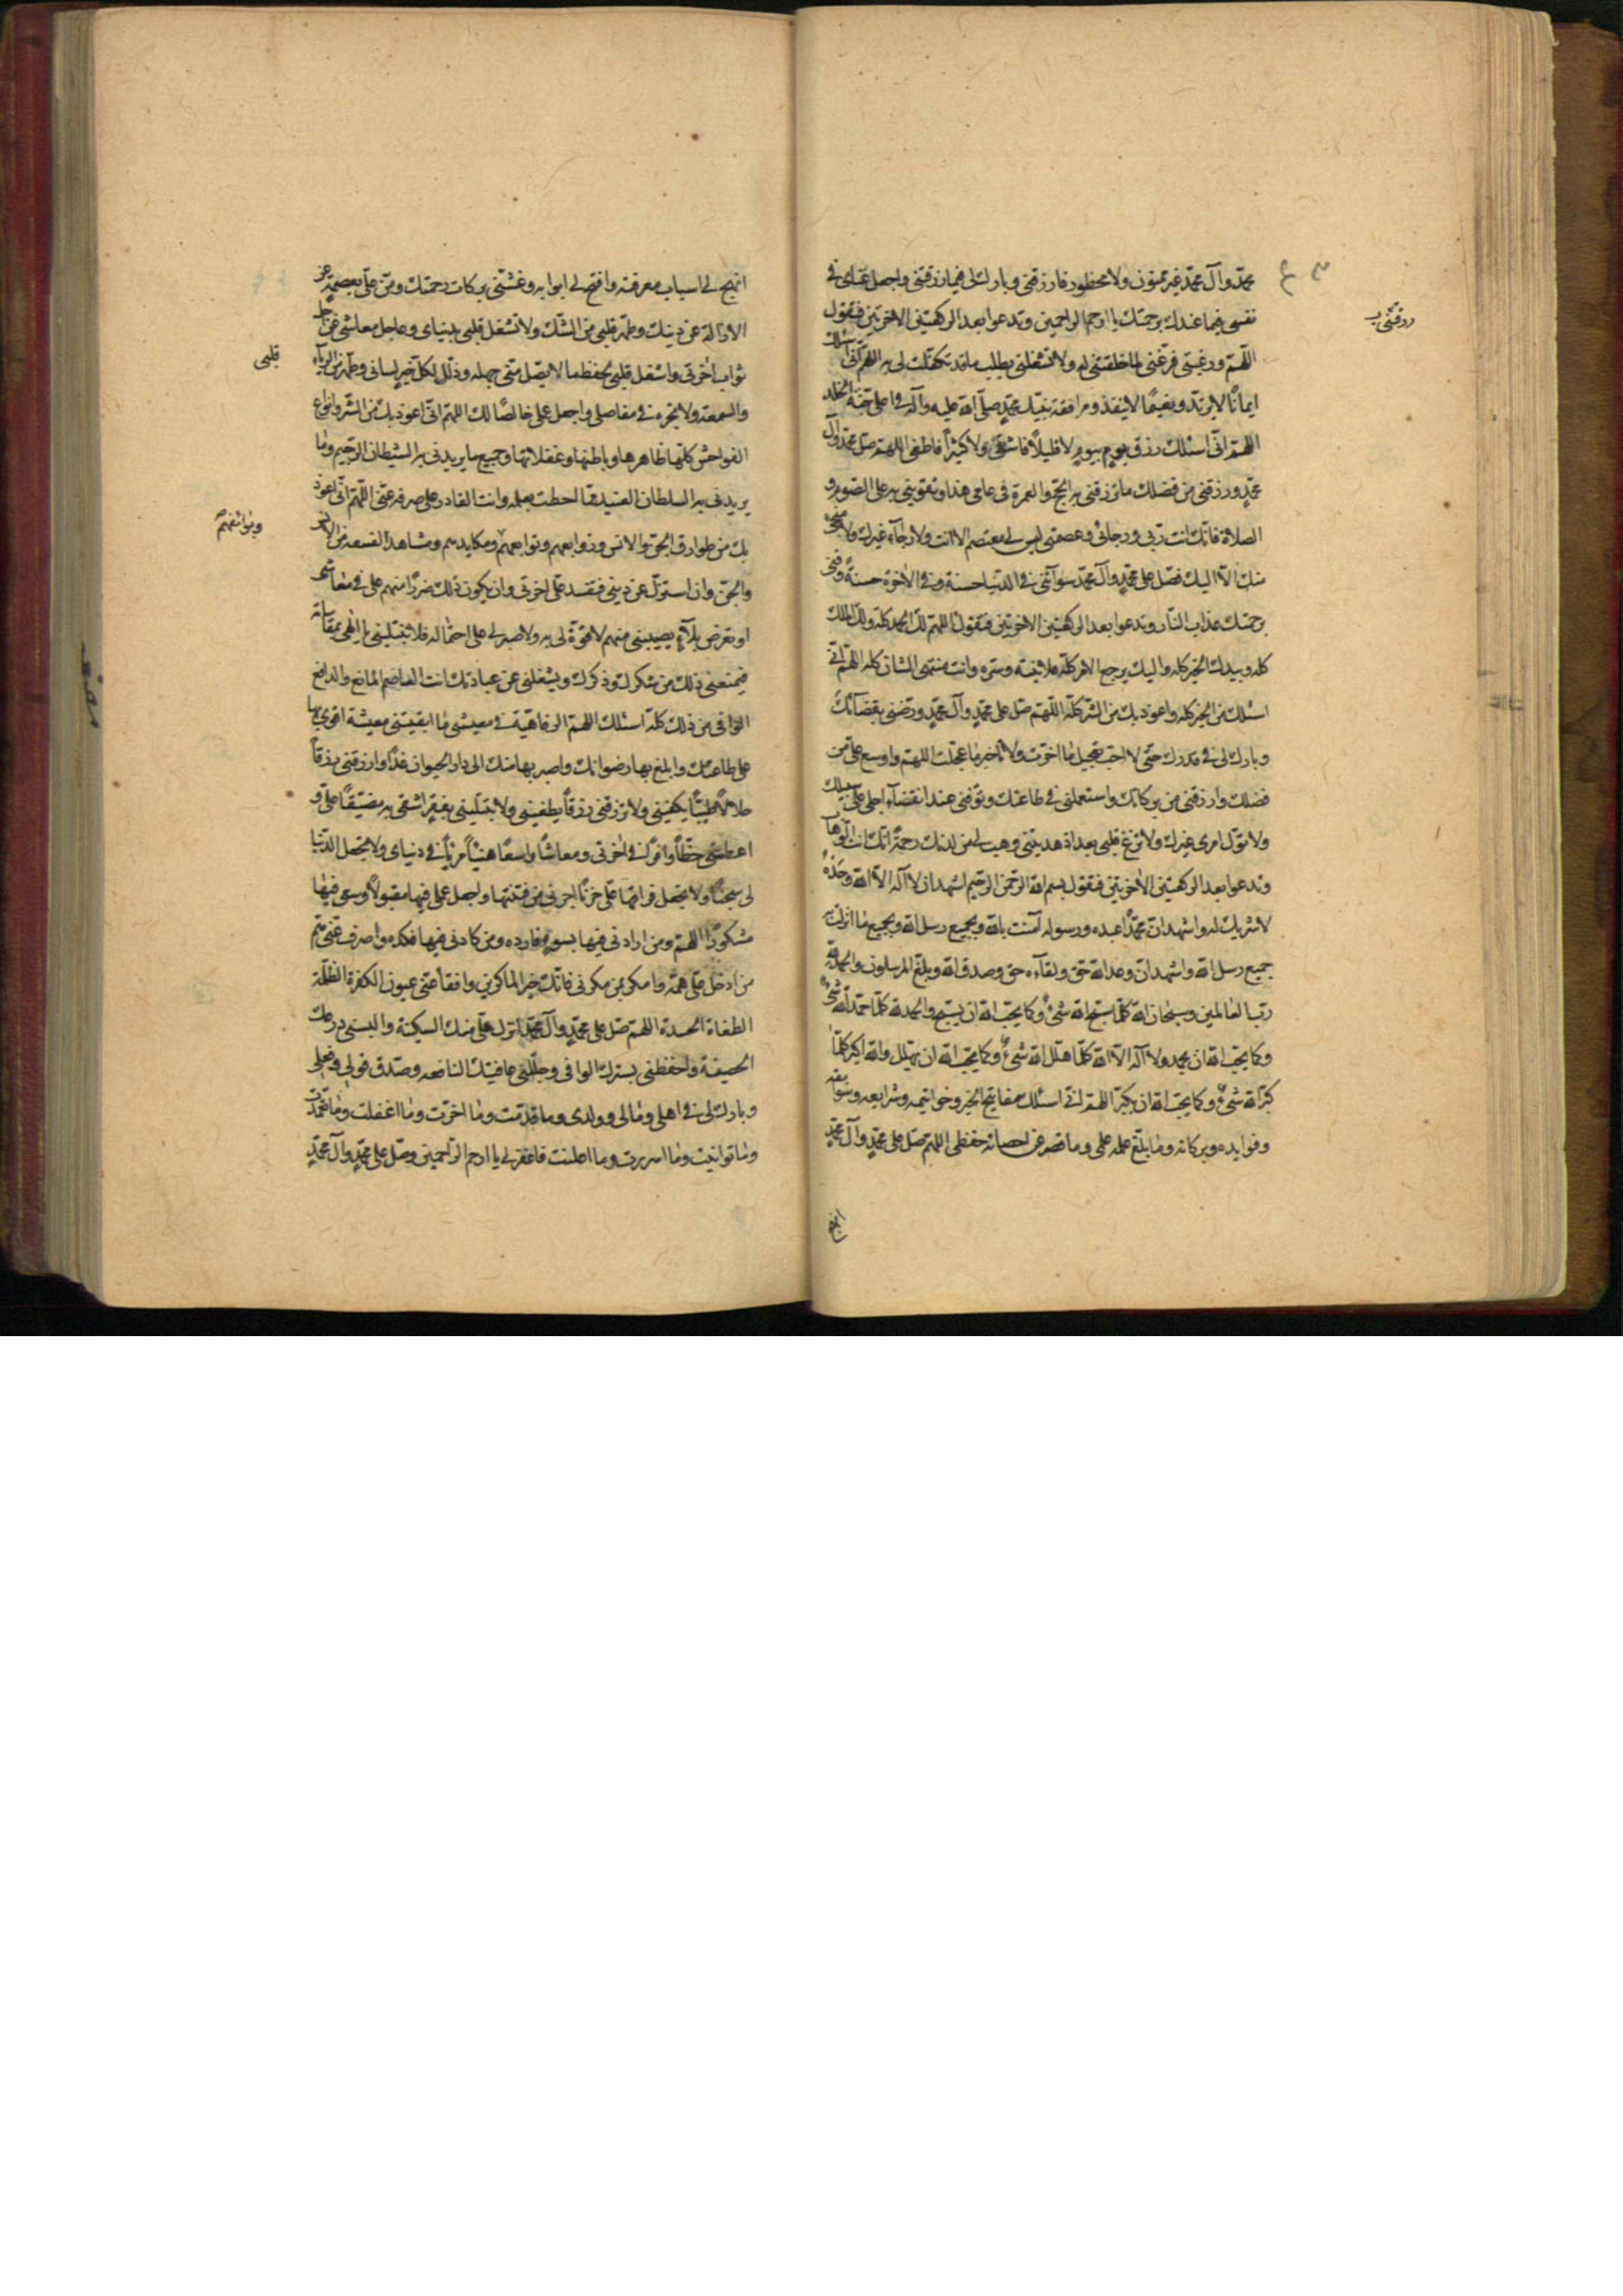 محمّد وآل محمّد غير ممنون ولا محظور فارزقنى وبارك لى فيما رزقتنى واجعل غناى فى
نفسى فيما عندك برحمتك يا ارحم الراحمين وتدعوا بعد الركعتين الاخرتين فتقول
اللّهمّ فرّغنى لما خلقتنى له ولا تشغلنى بطلب ما قد تكفّلت لى به اللّهمّ انّى اسئلك
ايمانًا لا يرتدّ ونعيمًا لا ينفذ ومرافقة نبيّك محمّد صلّى الله عليه وآله فى اعلى جنّة الخلد
اللهمّ انّى اسئلك رزق يوم بيوم لا قليلاً فاشقى ولا كثيراً فاطغى اللهمّ صلّ على محمّد وآل
محمّد ورزقنى من فضلك ما ترزقنى به الحجّ والعمرة فى عامى هذا وتقوينى به على الصّوم و
الصلاة فانّك انت ربّى ورجائى وعصمتى ليس لى معتصم الا انت ولا رجاء غيرك ولا منجى
منك الّا اليك فصلّ على محمّد وآل محمّد وآتنى فى الدّنيا حسنة وفى الاخرة حسنةً وقنى
برحمتك عذاب النّار وتدعوا بعد الركعتين الاخرتين فتقول اللهمّ لك الحمد كلّه ولك الملك
كله وبيدك الخير كله واليك يرجع الامر كلّه علانيته وسرّه وانت منتهى الشان كله اللهمّ انّى
اسئلك من الخير كله واعوذ بك من الشر كلّه اللّهمّ صلّ على محمّد وآل محمّد ورضّنى بقضائك
وبارك لى فى قدرك حتّى لا احبّ تعجيل ما اخّرت ولا تاخير ما عجّلت اللهمّ واوسع علىّ من
فضلك وارزقنى من بركاتك واستعملنى فى طاعتك وتوفّنى عند انقضاء اجلى على سبيلك
ولا تولّ امرى غيرك ولا تزغ قلبى بعد اذ هديتنى وهب لى من لدنك رحمةً انّك انت الوهّاب
وتدعوا بعد الركعتين الاخرتين فتقول بسم الله الرّحمن الرّحيم اشهد ان لا آله الّا الله وحده
لا شريك له واشهد انّ محمّدًا عبده ورسوله آمنت بالله وبجميع رسل الله وبجميع ما انزلت به
جميع رسل الله واشهد انّ وعد الله حقّ ولقآءه حق وصدق الله وبلّغ المرسلون والحمد لله
ربّ العالمين وسبحان الله كلّما سبّح الله شىءٌ وكما يحبّ الله ان يسبّح والحمد لله كلّما حمد الله شىءٌ
وكما يحبّ الله ان يحمد ولا آله الّا الله كلّما هلّل الله شىءٌ وكما يحبّ الله ان يهلّل والله اكبر كلّما
كبّر الله شىءٌ وكما يحبّ الله ان يكبّر اللهمّ انّى اسئلك مفاتيح الخير وخواتيمه وشرايعه وسوابغه
وفوايده وبركاته وما بلغ علمه علمى وما قصر عن احصائه حفظى اللهمّ صلّ على محمّد وآل محمّد
انهج
انهج لى اسباب معرفته وافتح لى ابوابه وغشّنى بركات رحمتك ومنّ علىّ بعصمة عن
الازالة عن دينك وطهّر قلبى من الشّك ولا تشغل قلبى بدنياى وعاجل معاشى عن آجل
ثواب اخرتى واشغل قلبى بحفظ ما لا يقبل منّى جهله وذلّل لكلّ خير لسانى وطهّر من الرّياء
قلبى
والسمعة ولا تجره فى مفاصلى واجعل عملى خالصًا لك اللهمّ انّى اعوذ بك من الشّر وانواع
الفواحش كلّها ظاهرها وباطنها وغفلاتها وجميع ما يريدنى به الشيطان الرّجيم وما
يريدنى به السلطان العنيد ممّا احطت بعلمه وانت القادر على صرفه عنّى اللّهمّ انّى اعوذ
بك من طوارق الجنّ والانس وزوابعهم وتوابعهم ومكايدهم ومشاهد الفسقه من الانس
وبوائقهم
والجنّ وان استزلّ عن دينى فتفسد علىّ اخرتى وان يكون ذلك ضررًا منهم علىّ فى معاشى
او تعرض بلآء يصيبنى منهم لا قوّة لى به ولا صبر لى على احتماله فلا تبتلينى يا الهى بمقاساته
فيمنعنى ذلك من شكرك وذكرك ويشغلنى عن عبادتك انت العاصم المانع والدافع
الواقى من ذلك كلّه اسئلك اللهمّ الرفاهيّة فى معيشتى ما ابقيتنى معيشة اقوى بها
على طاعتك وابلغ بها رضوانك واصير بها منك الى دار الحيوان غدًا وارزقنى رزقاً
حلالاً طيّبًا يكفينى ولا ترزقنى رزقاً يطغينى ولا تبتلينى بفقر اشقى به مضيّقًا علىّ و
اعطنى حظّاً وافرًا فى اخرتى ومعاشًا واسعًا هنيئاً مريئاً فى دنياى ولا تجعل الدّنيا
لى سجنًا ولا تجعل فراقها علىّ حزنًا اجرنى من فتنتها واجعل عملى فيها مقبولاً وسعى فيها
مشكورًا اللهمّ ومن ارادنى فيها بسوء فارده ومن كادنى فيها فكده واصرف عنّى همّ
من ادخل علىّ همّه وامكر بمن مكرنى فانّك خير الماكرين وافقأ عنّى عيون الكفرة الظلمة
الطغاة الحسدة اللهمّ صلّ على محمّد وآل محمّد انزل علىّ منك السكينة والبسنى درعك
الحصينة واحفظنى بسترك الواقى وجلّلنى عافيتك النافعه وصدّق قولى وفعلى
وبارك لى فى اهلى ومالى وولدى وما قدّمت وما اخّرت وما اغفلت وما تعمّدت
وما توانيت وما اسررت وما اعلنت فاغفر لى يا ارحم الرّاحمين وصلّ على محمّد وآل محمّد